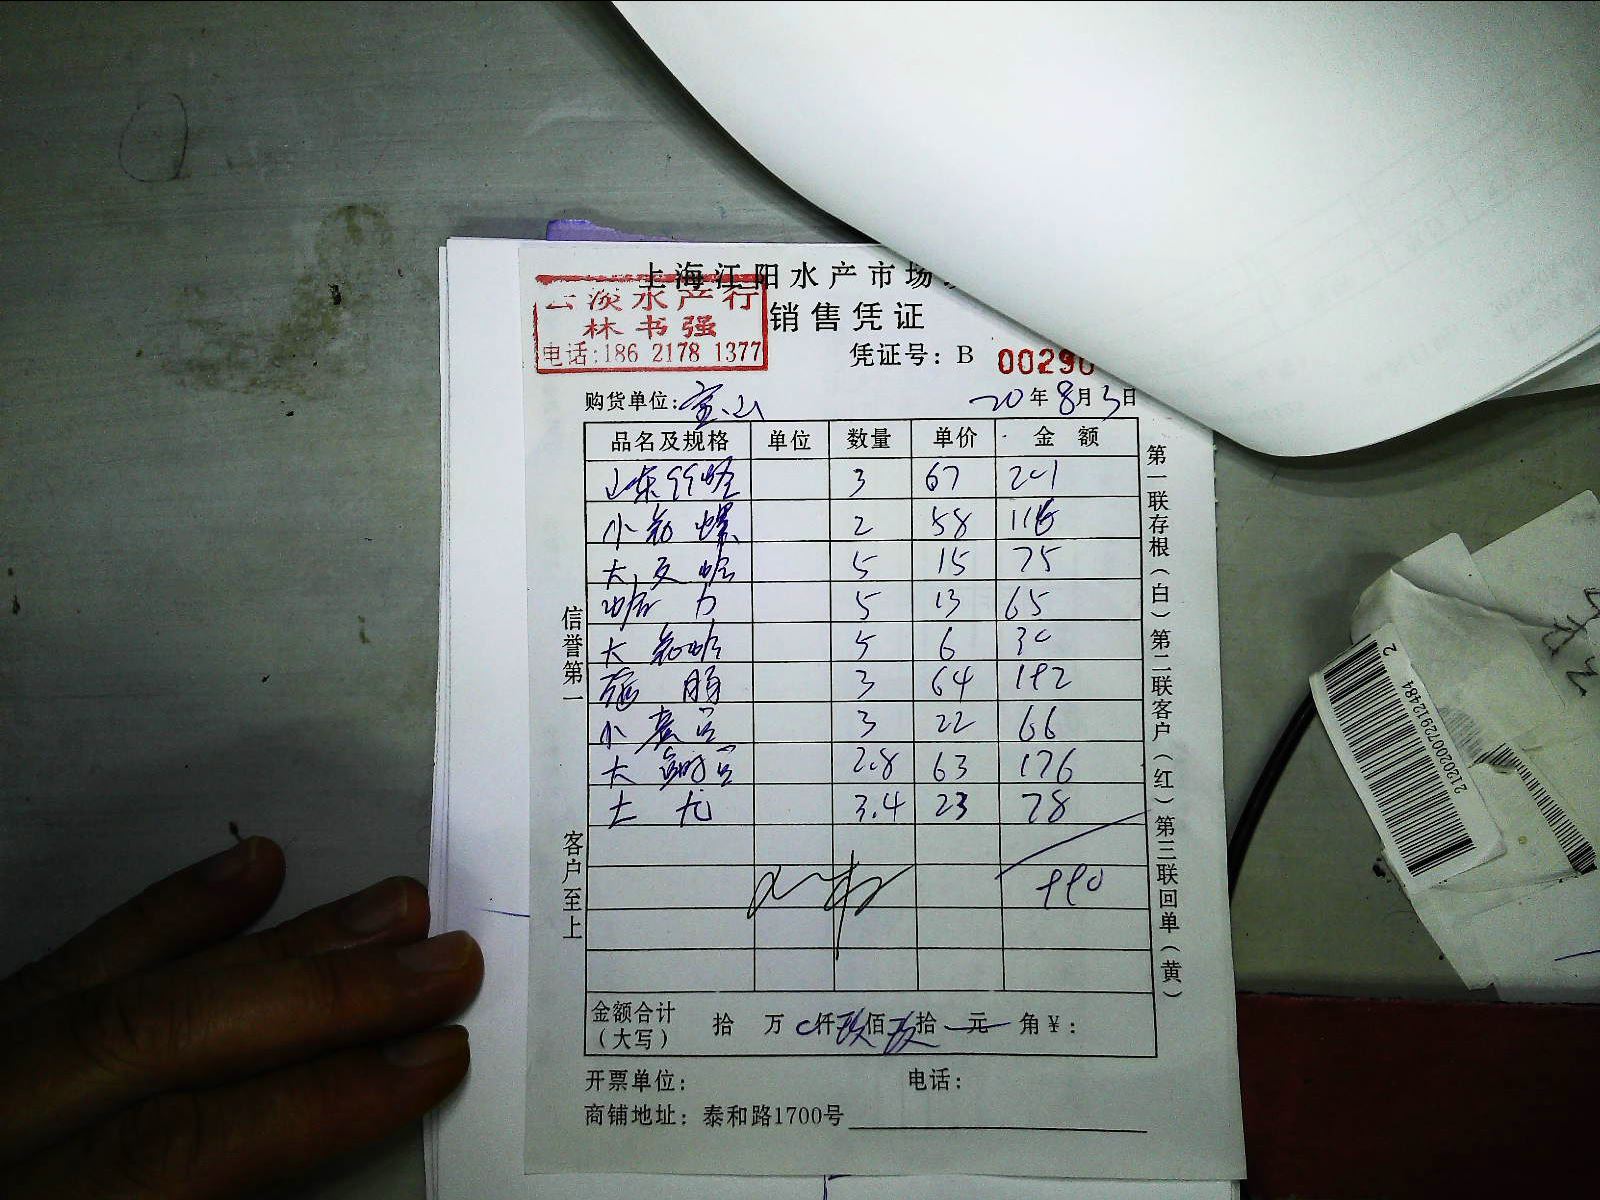 上海江阳水产市场
云淡水产行
林书强
电话:186 2178 1377
销售凭证
凭证号: B 00290
购货单位: 宝山 20年8月3日
品名及规格 单位 数量 单价 金额
山东 3 67 201
小 螺 2 58 116
大 5 15 75
蛤 力 5 13 65
大 蛤 5 6 30
3 64 192
小 3 22 66
大 2.8 63 176
土 尤 3.4 23 78
990
金额合计(大写) 拾 万 0仟玖佰玖拾 元 角¥:
开票单位: 电话:
商铺地址: 泰和路1700号
信誉第一 客户至上
第一联存根(白)第二联客户(红)第三联回单(黄)
2120200072912484 2